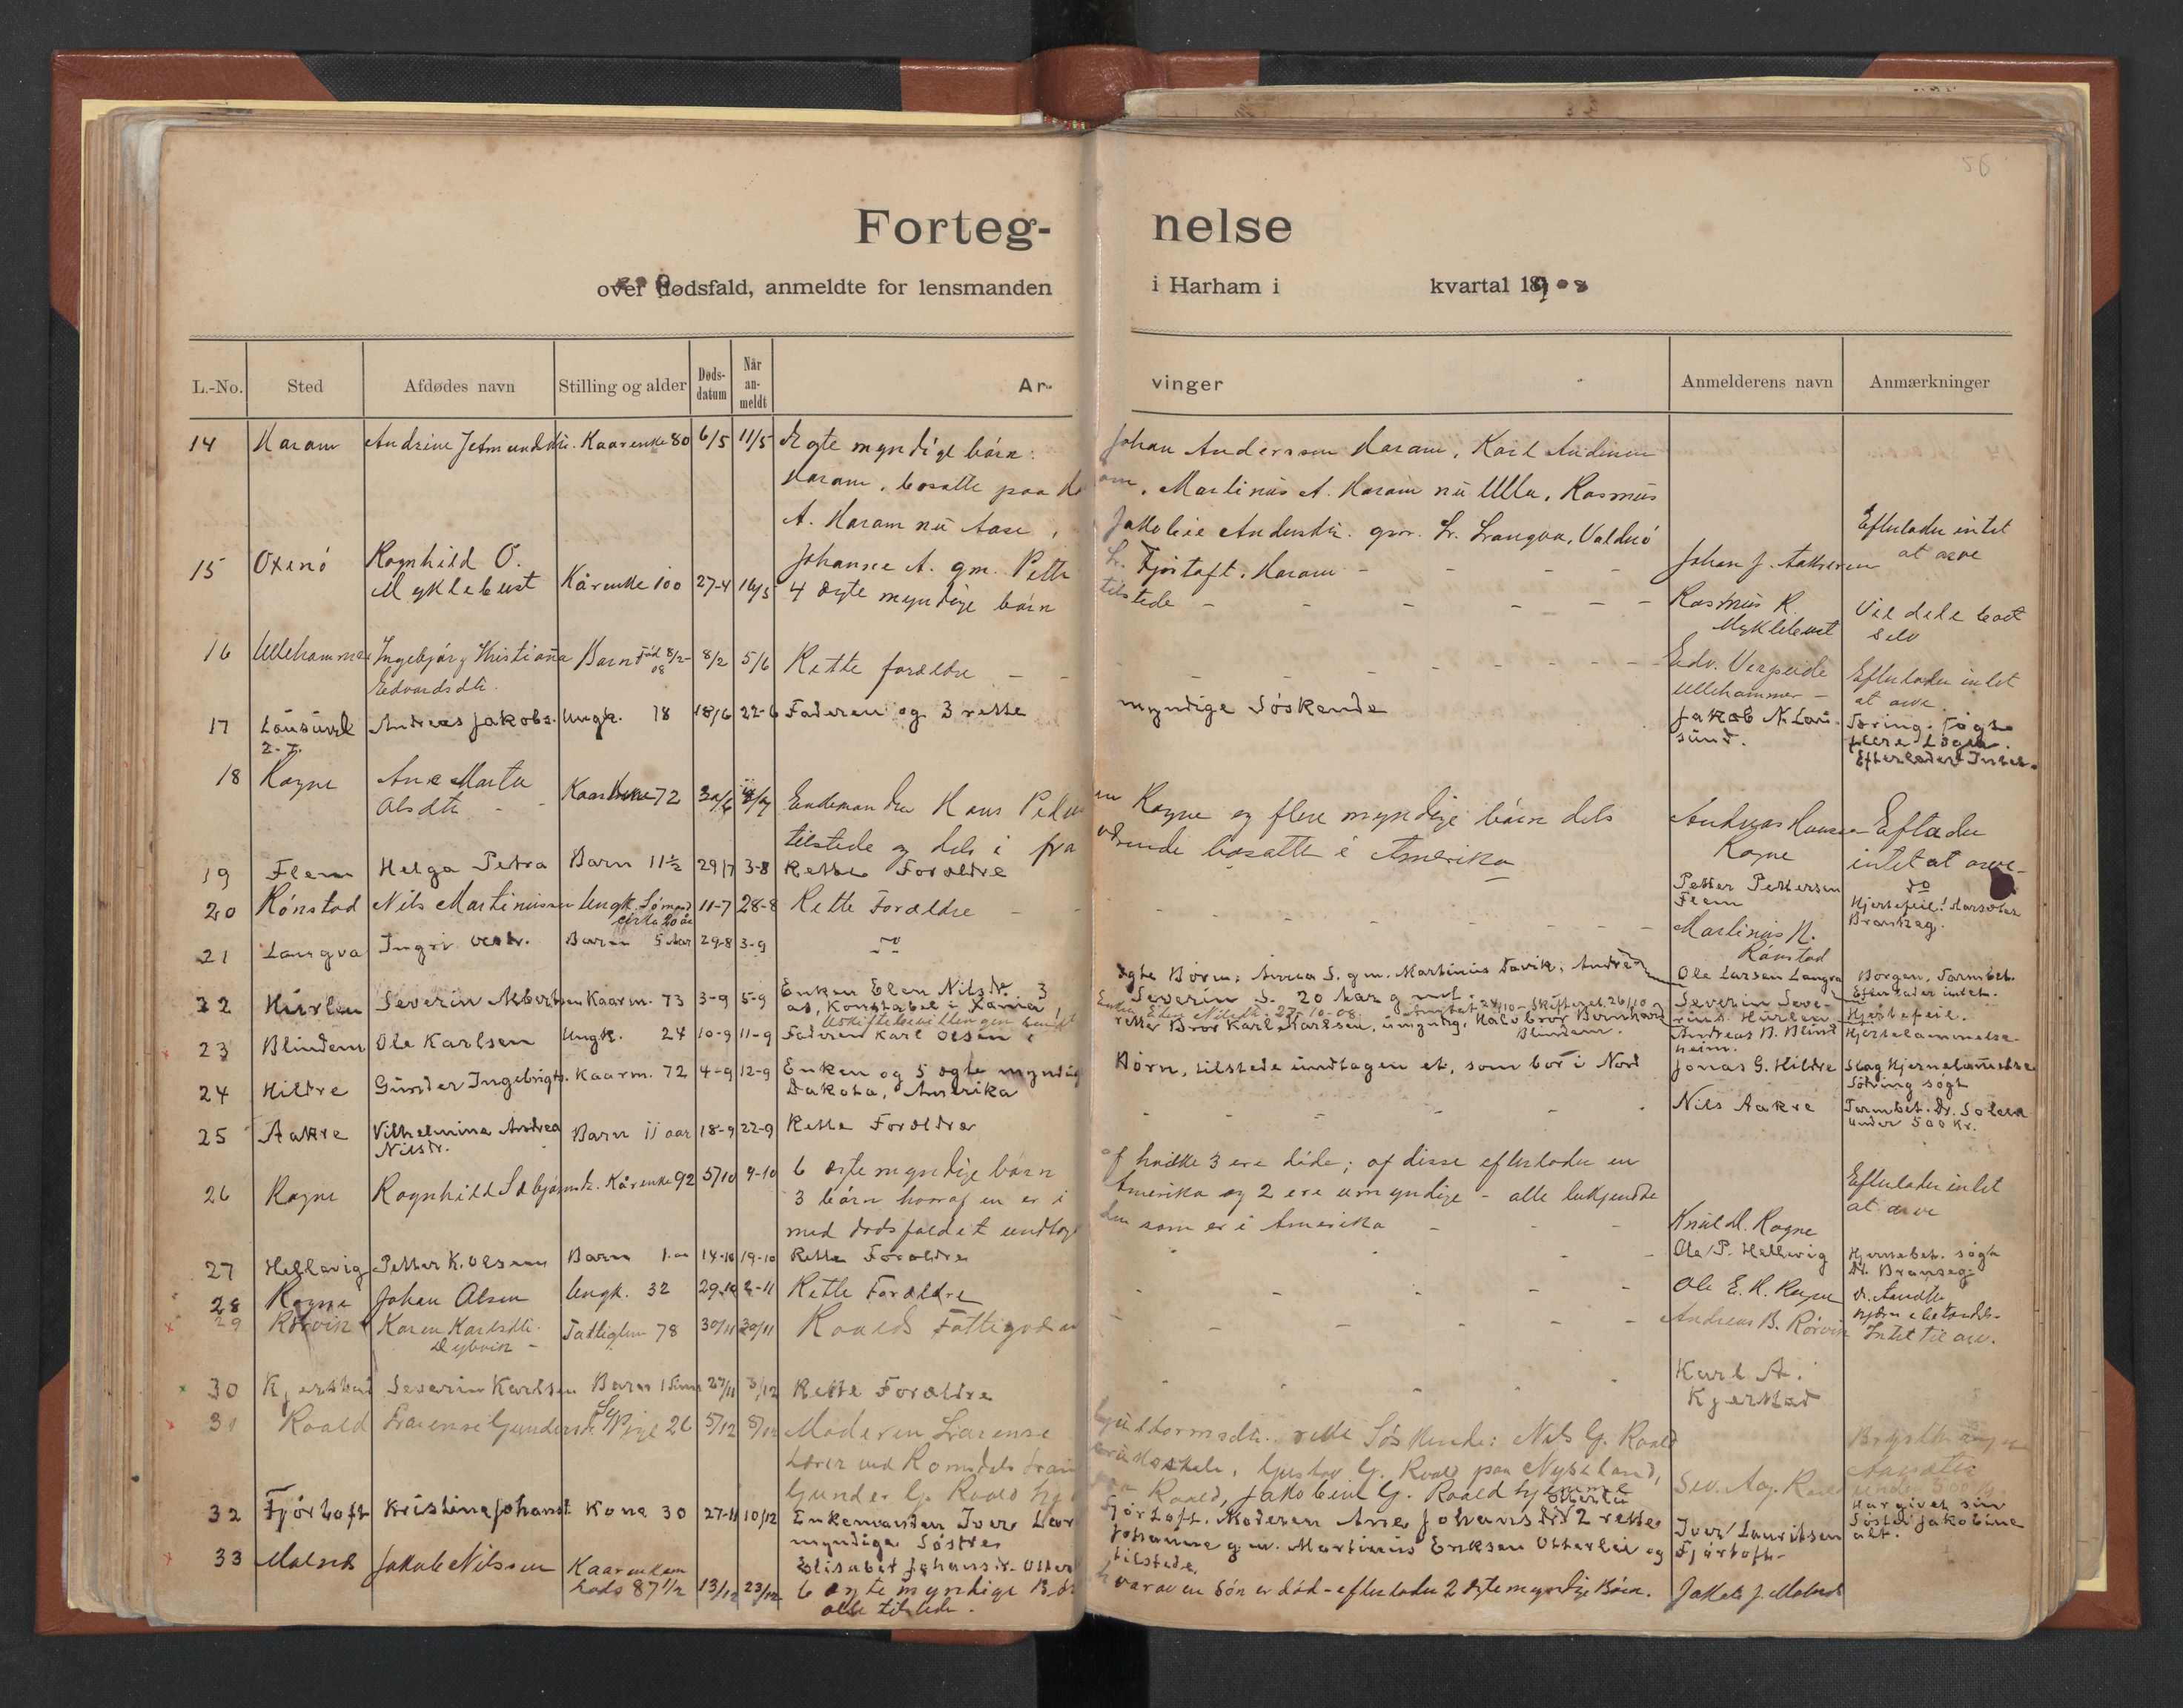 56
Forteg- nelse
over dødsfald, anmeldte for lensmanden i Harham i kvartal 1908
L.-No. Sted Afdødes navn Stilling og alder Døds-datum Når an-meldt Ar- vinger Anmelderens navn Anmærkninger
14 Haram Andrine Jetmundsdtr. Kaarenke 80 6/5 11/5 Ægte myndige børn: Johan Anderssen Haram, Karl Andersen
Haram, bosatte paa Haram, Martinus A. Haram nu Ulla, Rasmus
A. Haram nu Aase, Jakobine Andersdtr. gm. L. Langva, Valderø
Johanne A. gm. Petter L. Fjørtoft, Haram - - - Johan J. Aakreren Efterlader intet at arve
15 Oxenö Ragnhild O. Myklebust Kårenke 100 27-4 16/5 4 ægte myndige børn tilstede - - - Rasmus R. Myklebust Vil dele boet selv
16 Ullehammer Ingebjørg Kristiana Edvardsdtr. Barn Fød 8/2-08 8/2 5/6 Rette forældre - - - Edv. Vegsund Ullehammer - Efterlader intet at arve
17 Lausund Andreas Jakobs. Ungk. 18 18/6 22-6 Faderen og 3 rette myndige Søskende Jakob N. Lausund. Tæring. Søgt flere Læger. Efterlader Intet.
18 Rogne Ane Marta Olsdtr. - Kaarkone 72 30/6 8/7 Enkemanden Hans Pedersen Rogne og flere myndige børn dels
tilstede og dels i fraværende bosatte i Amerika Andreas Hansen Rogne Eftlader intet at arve
19 Flem Helga Petra Barn 11½ 29/7 3-8 Rette Forældre Petter Pettersen Flem do
20 Rønstad Nils Martinussen Ungk. Sømand cirka 20 år 11-7 28-8 Rette Forældre - - - Martinus N. Rønstad Hjertefeil. Brandtzæg.
21 Langva Ingri Olsdr. Barn 5 Aar 29-8 3-9 do Ole Larsen Langva Borgen, Tarmbet. Efterlader intet.
22 Hurlen Severin Albertsen Kaarm. 73 3-9 5-9 Enken Elen Nilsdr. 3 ægte Børn: Anna S. gm. Martinus Davik, Andre-
as, Konstabel i Severin S. 20 Aar g. ml. Severin Severins. Hurlen Hjertefeil.
Enken Elen Nilsdtr. 27-10-08. 24/10 - Skifteret. 26/10
23 Blindem Ole Karlsen Ungk. 24 10-9 11-9 Faderen Karl Olsen, rette Bror Karl Karlsen, umyndig, Halvbror Bernhard Blindem. Andreas B. Blindheim. Hjertelammelse.
24 Hildre Gunder Ingebrigts. Kaarm. 72 4-9 12-9 Enken og 5 ægte myndige Børn, tilstede undtagen et, som bor i Nord
Dakota, Amerika Jonas G. Hildre Slag Hjernelammelse Sødring søgt
25 Aakre Vilhelmine Andrea Nilsdr. Barn 11 aar 18-9 22-9 Rette Forældre - - - Nils Aakre Tarmbet. Dr. Solem under 500 Kr.
26 Rogne Ragnhild Sæbjørnsdr. Kårenke 92 5/10 9-10 6 ægte myndige børn af hvilke 3 ere døde; af disse efterlader en
3 børn hvoraf en er i Amerika og 2 ere umyndige - alle bekjendte
med dødsfaldet undtagen den som er i Amerika - - Knut M. Rogne Efterlader intet at arve
27 Hellevig Petter K. Olsen Barn 14-10 19-10 Rette Forældre - - Ole P. Hellevig Hjernebet. søgt Dr. Branseg.
28 Rogne Johan Olsen Ungk. 32 29-10 2-11 Rette Forældre - - - Ole E. K. Rogne
29 Rørvik Karen Karlsdtr. Dybvik - Fattiglem 78 30/11 30/11 Roalds Fattigvæsen - - - Andreas B. Rørvik Intet til arv.
30 Kjerstad Severin Karlsen Barn 27/11 3/12 Rette Forældre - - Karl A. Kjerstad
31 Roald Larense Gundersdtr. Sypige 26 5/12 8/12 Moderen Larense Guttormsdtr. rette Søskende: Nils G. Roald
Lærer ved Romsdals Gustav G. Roald paa Nyseland,
Gunder G. Roald Roald, Jakobine G. Roald hjemme Sev. Aag. Roald
32 Fjørtoft Kristine Johansd. Kone 30 27-11 10/12 Enkemanden Iver Laur. Fjørtoft. Moderen Ane Johansdtr. Otterlei 2 rette
myndige Søstre Johanne gm. Martinus Eriksen Otterlei og
Elisabet Johansdr. Otterlei tilstede. Iver Lauritsen Fjørtoft - Har givet sin Søster Jakobine alt.
33 Malnes Jakob Nilssen Kaarenkemands 87 1/2 13/12 23/12 6 ægte myndige Børn hvorav en Søn er død - efterlader 2 ægte myndige Børn.
alle tilstede. Jakob J. Malnes